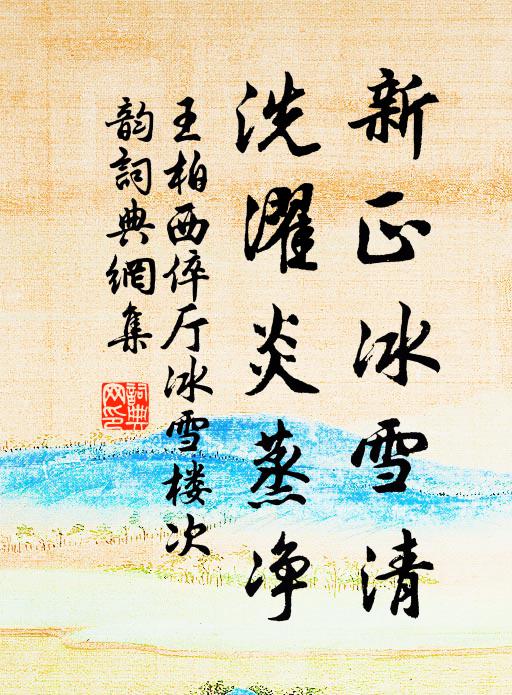 新正冰雪清
洗濯炎蒸净
王柏西倅厅冰雪楼次
韵詞典網集
詞典
网印